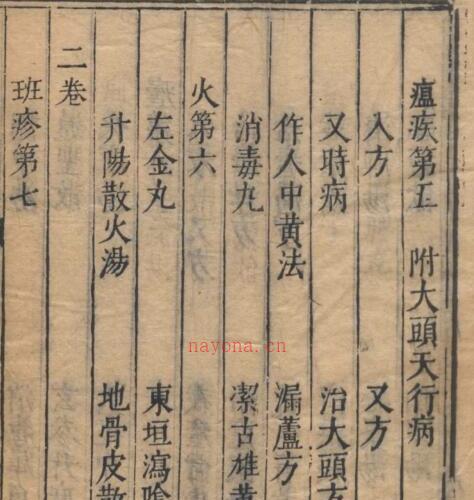 瘟疫第五 附大頭天行病
入方 又方
又時病 治大頭
作人中黃法 漏蘆方
消毒丸 潔古雄黃
火第六
左金丸 東垣瀉陰
升陽散火湯 地骨皮散
二卷
班疹第七
nayona.cn